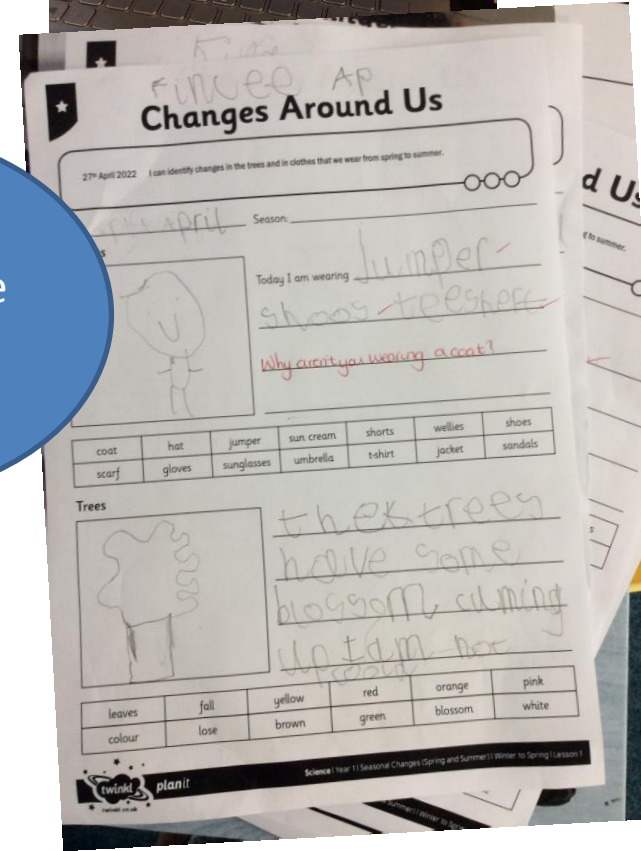 AP
Changes Around Us
27th April 2022 I can identify changes in the trees and in clothes that we wear from spring to summer.
April Season:
Today I am wearing Jumper
shoos teeshert
Why aren't you wearing a coat?
coat hat jumper sun cream shorts wellies shoes
scarf gloves sunglasses umbrella t-shirt jacket sandals
Trees
trees
have some
blossom cuming
up I am not
leaves fall yellow red orange pink
colour lose brown green blossom white
Science | Year 1 | Seasonal Changes (Spring and Summer) | Winter to Spring | Lesson 1
twinkl planit
twinkl.co.uk
d Us
to summer.
e